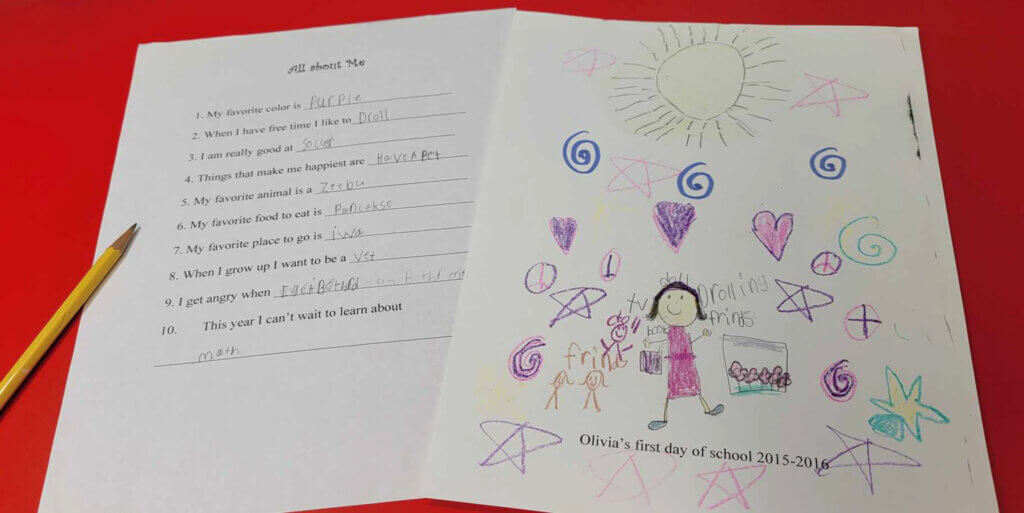 All about Me
1. My favorite color is purple
2. When I have free time I like to Droll
3. I am really good at Soccer
4. Things that make me happiest are Have A pet
5. My favorite animal is a Zeebu
6. My favorite food to eat is pancakse
7. My favorite place to go is iwa
8. When I grow up I want to be a vet
9. I get angry when I get BothRd
10. This year I can't wait to learn about
math
doll
tv
Drolling
frints
book
frind
Olivia's first day of school 2015-2016